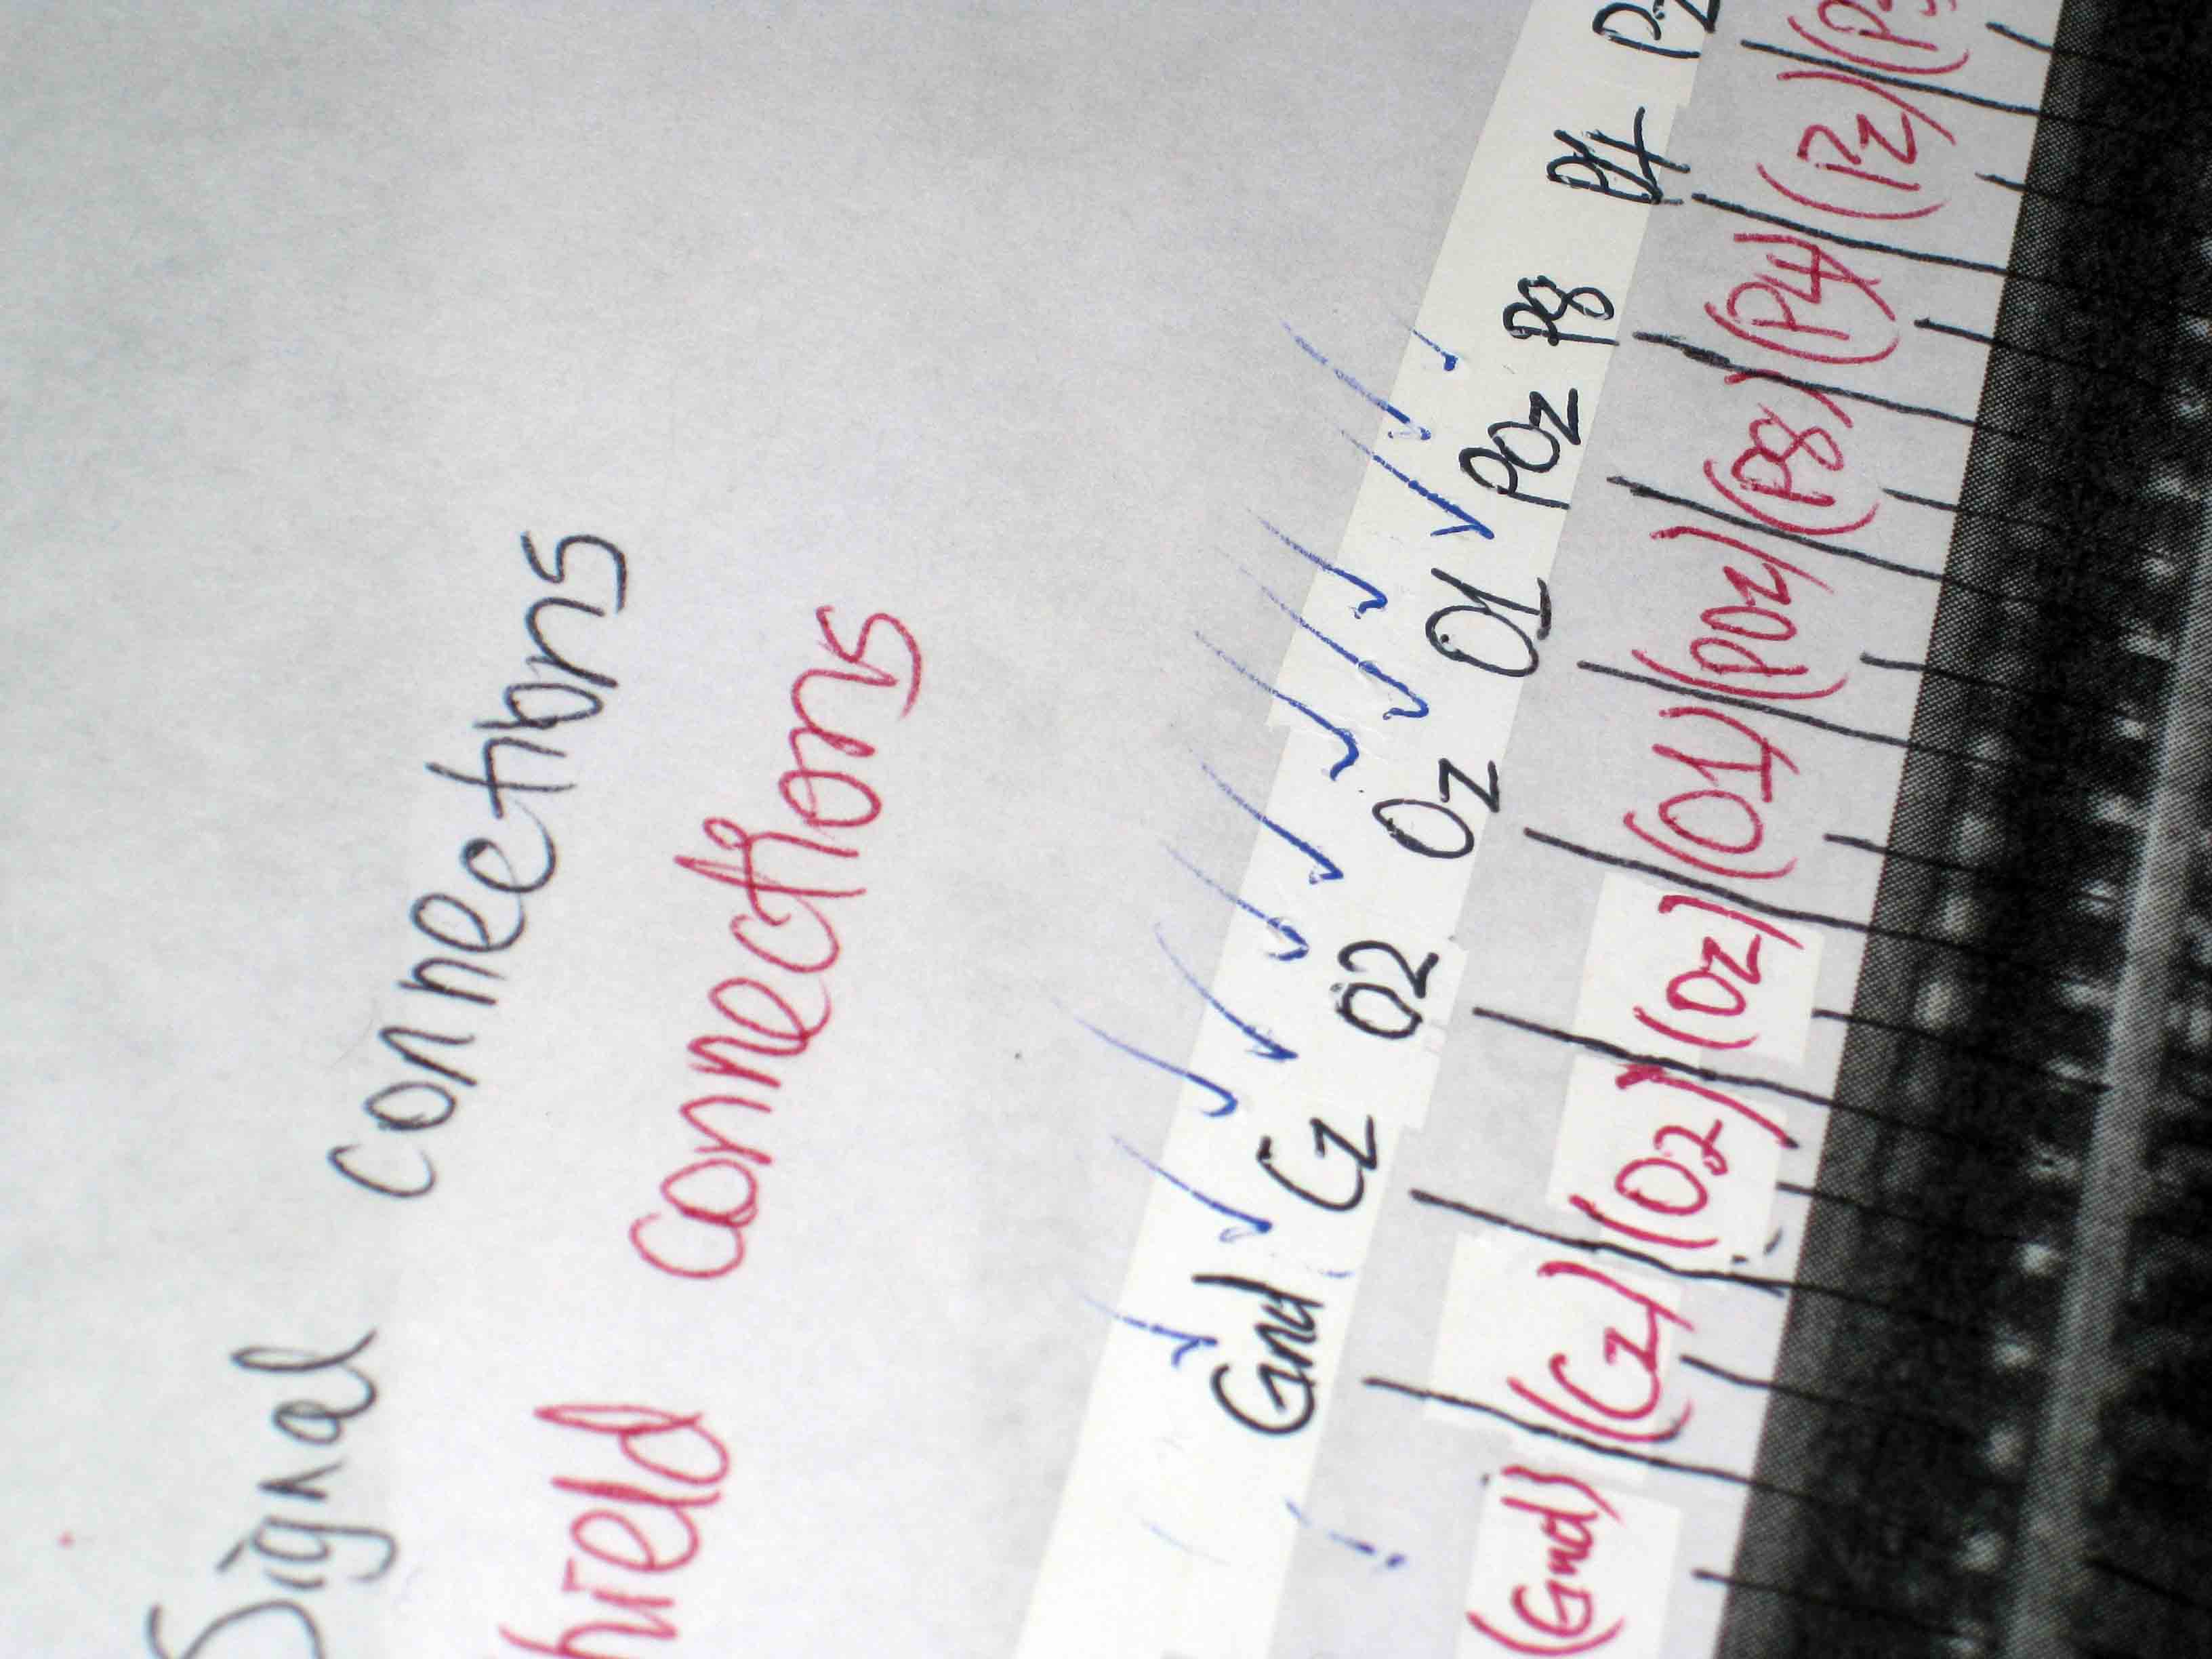 Signal connections
connections
Gnd Cz O2 Oz O1 POz P8 P4 Pz
(Gnd) (Cz) (O2) (Oz) (O1) (POz) (P8) (P4) (Pz)